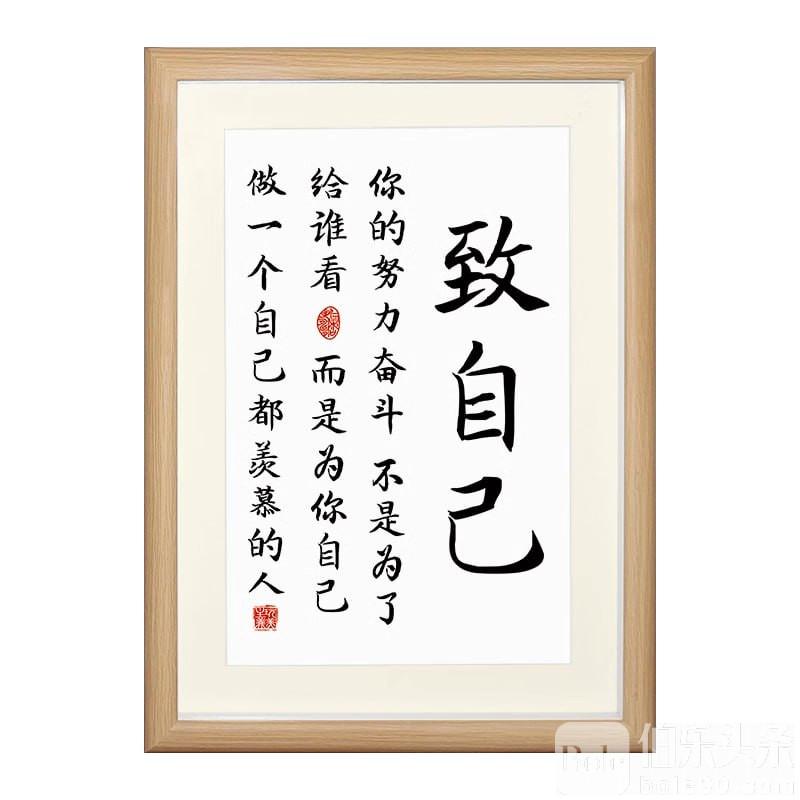 致自己
你的努力奋斗 不是为了
给谁看 而是为你自己
做一个自己都羡慕的人
Bole 伯乐头条
bole90.com